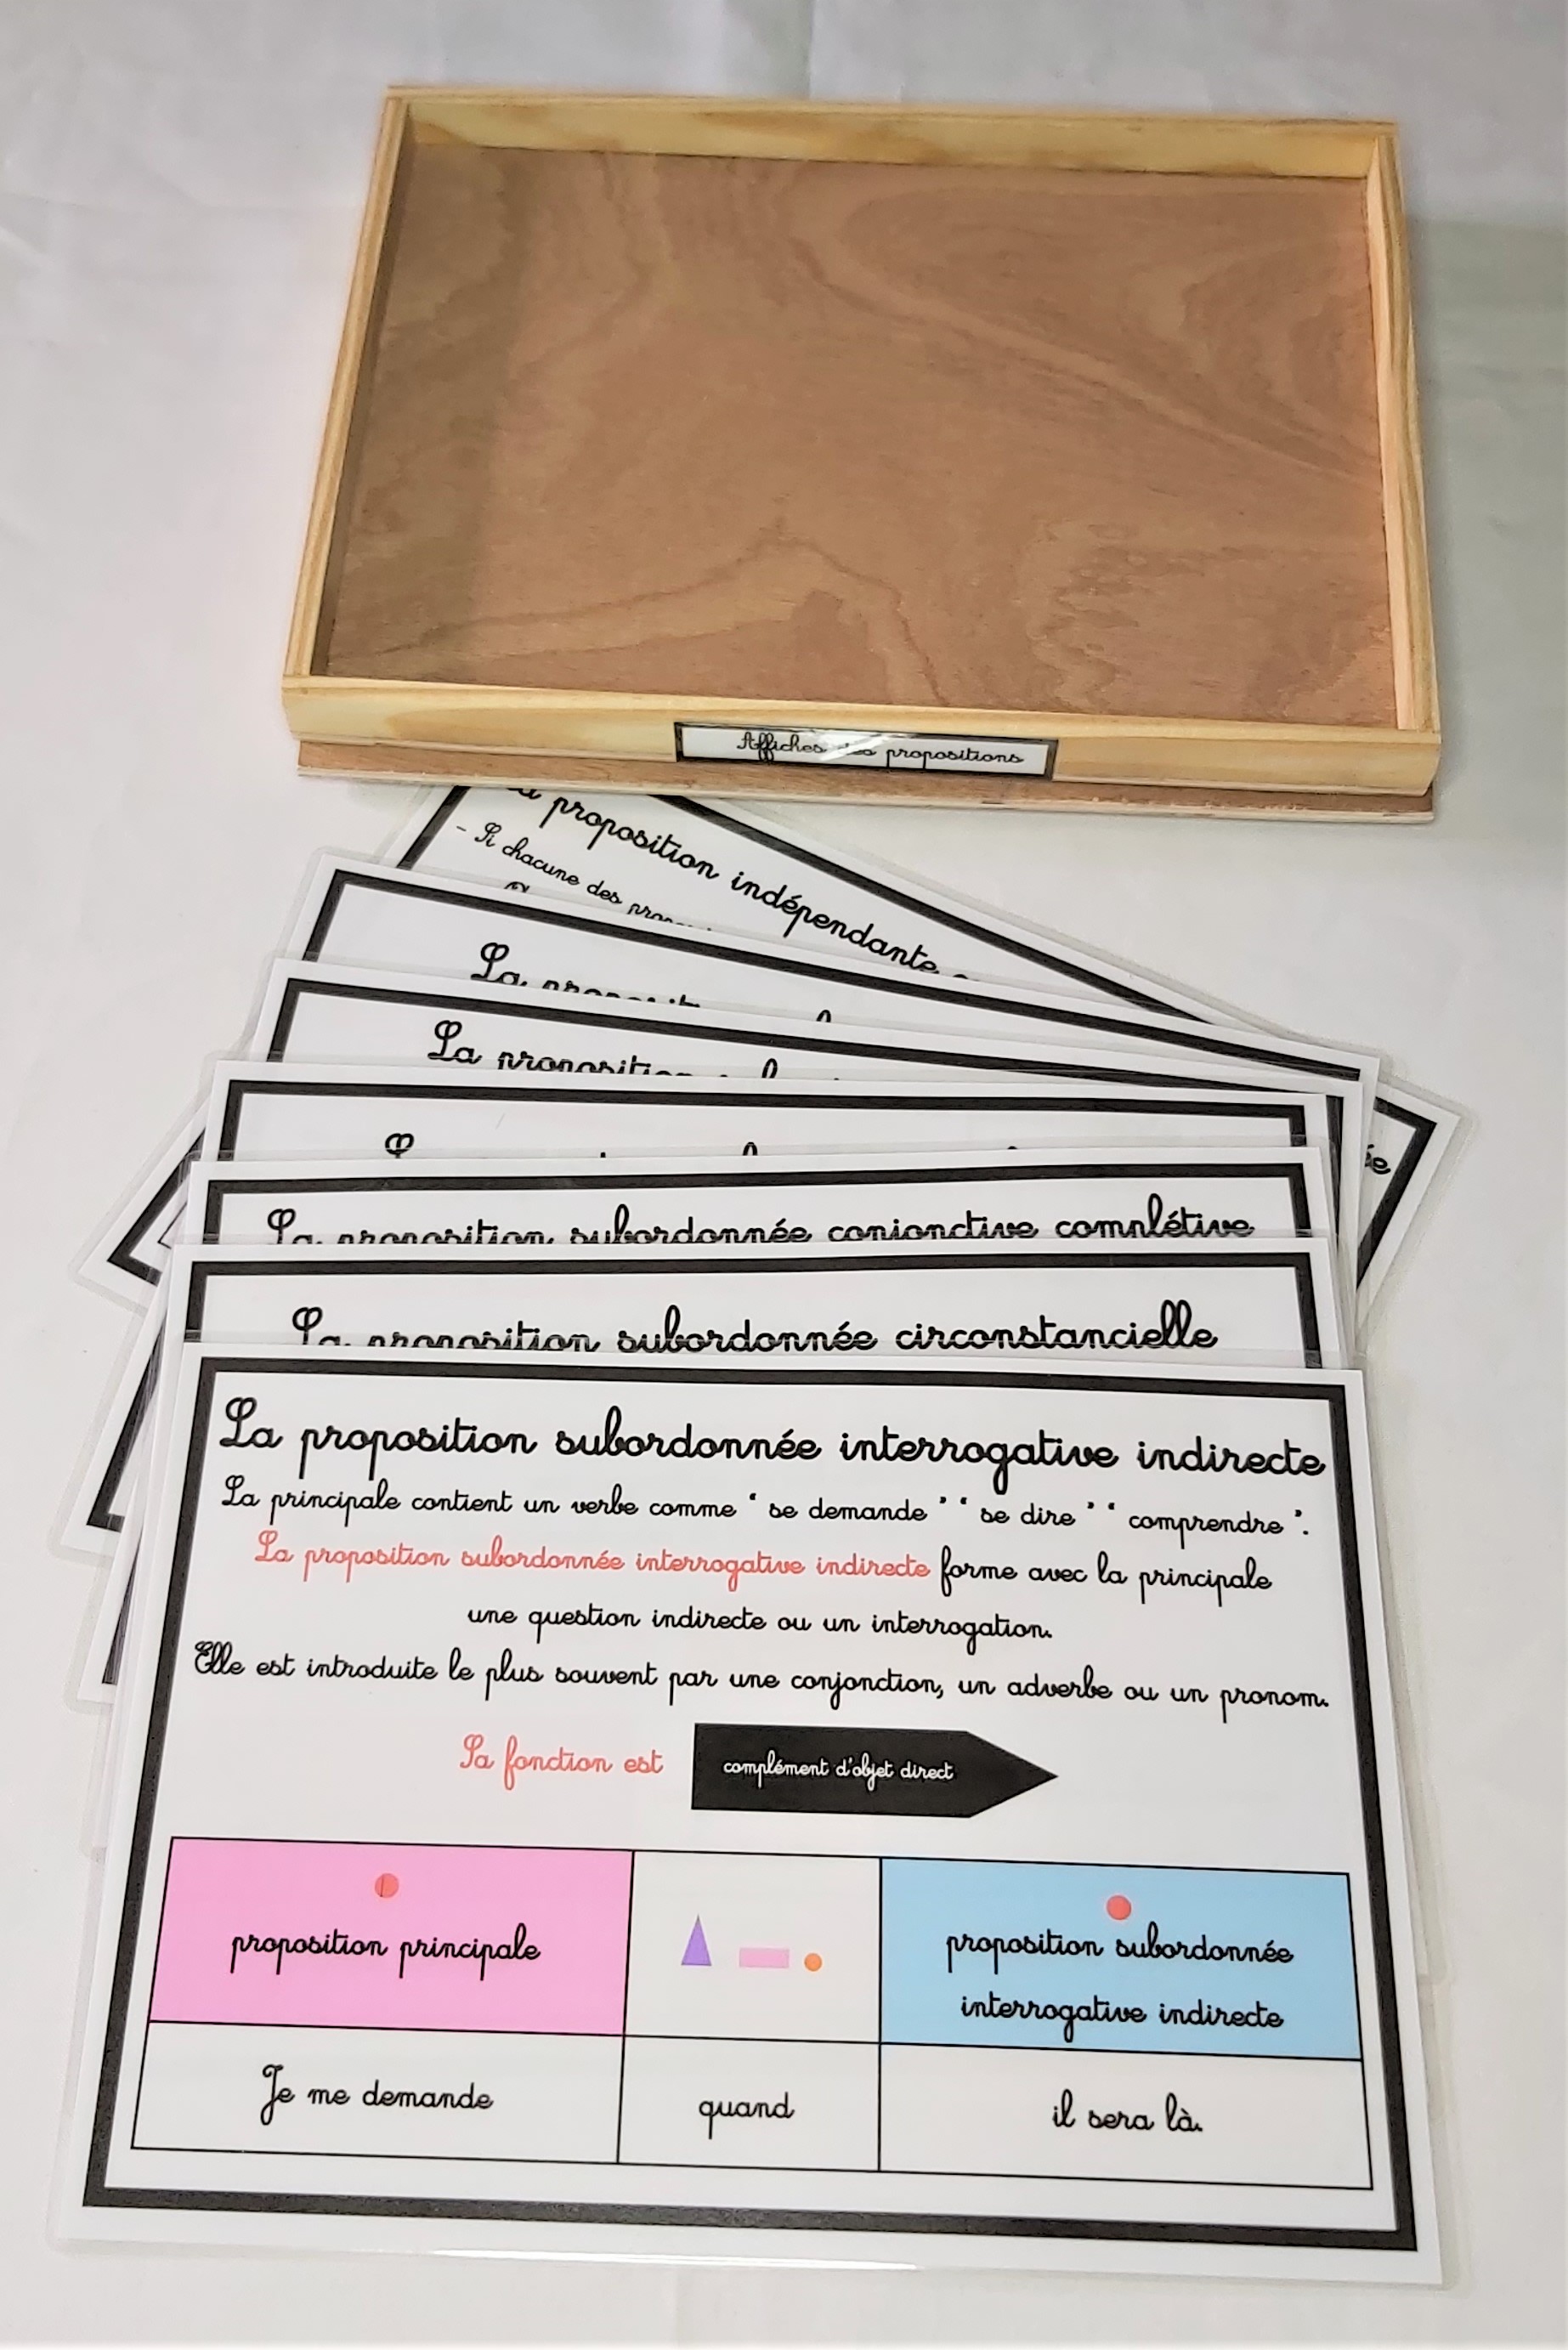 Affiches des propositions
La proposition indépendante
- Si chacune des
La
La proposition
La proposition subordonnée conjonctive complétive
La proposition subordonnée circonstancielle
La proposition subordonnée interrogative indirecte
La principale contient un verbe comme ‘ se demande ’ ‘ se dire ’ ‘ comprendre ’.
La proposition subordonnée interrogative indirecte forme avec la principale
une question indirecte ou un interrogation.
Elle est introduite le plus souvent par une conjonction, un adverbe ou un pronom.
Sa fonction est complément d'objet direct
proposition principale
proposition subordonnée
interrogative indirecte
Je me demande quand il sera là.